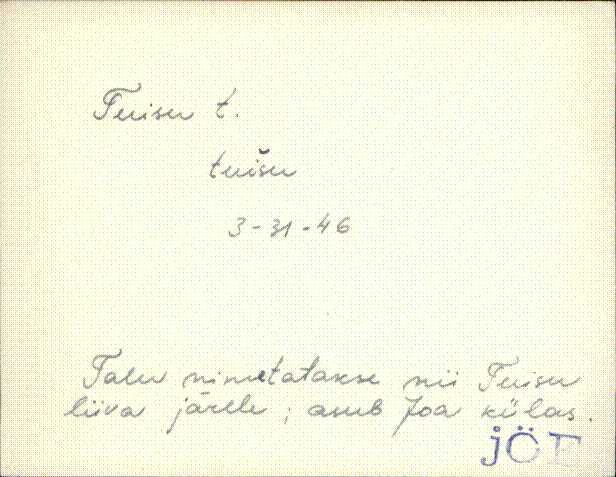 Tuisu t.
tuĭsu
3-31-46
Talu nimetatakse nii Tuisu
liiva järele; asub Joa külas.
JÕE